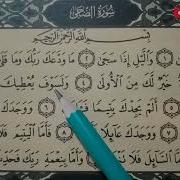 سُورَةُ الضُّحَىٰ
بِسْمِ اللَّهِ الرَّحْمَٰنِ الرَّحِيمِ
وَاللَّيْلِ إِذَا سَجَىٰ ٢ مَا وَدَّعَكَ رَبُّكَ وَمَا قَلَىٰ
خَيْرٌ لَّكَ مِنَ الْأُولَىٰ ٤ وَلَسَوْفَ يُعْطِيكَ
أَلَمْ يَجِدْكَ يَتِيمًا
وَوَجَدَكَ عَائِلًا ٨ فَأَمَّا الْيَتِيمَ فَلَا
السَّائِلَ فَلَا وَأَمَّا بِنِعْمَةِ رَبِّكَ فَحَدِّثْ